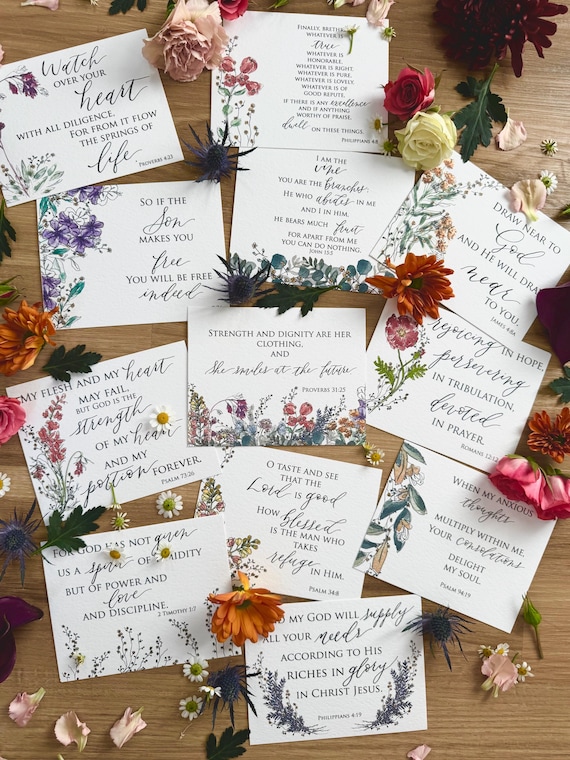 Watch
over your
heart
with all diligence,
for from it flow
the springs of
life
Proverbs 4:23
Finally, brethren,
whatever is
true
whatever is
honorable,
whatever is right,
whatever is pure,
whatever is lovely,
whatever is of
good repute,
if there is any excellence
and if anything
worthy of praise,
dwell on these things.
Philippians 4:8
So if the
Son
makes you
free
you will be free
indeed
I am the
vine
you are the branches,
He who abides in me
and I in him,
he bears much fruit
for apart from me
you can do nothing.
John 15:5
Draw near to
God
and He will draw
near
to you.
James 4:8a
Strength and dignity are her
clothing,
and
She smiles at the future
Proverbs 31:25
Rejoicing in hope,
persevering
in tribulation,
devoted
in prayer.
Romans 12:12
My flesh and my heart
may fail,
but God is the
strength
of my heart
and my
portion forever.
Psalm 73:26
O taste and see
that the
Lord is good
How blessed
is the man who
takes
refuge
in Him.
Psalm 34:8
When my anxious
thoughts
multiply within me,
your consolations
delight
my soul.
Psalm 94:19
For God has not given
us a spirit of timidity
but of power and
love
and discipline.
2 Timothy 1:7
my God will supply
all your needs
according to His
riches in glory
in Christ Jesus.
Philippians 4:19